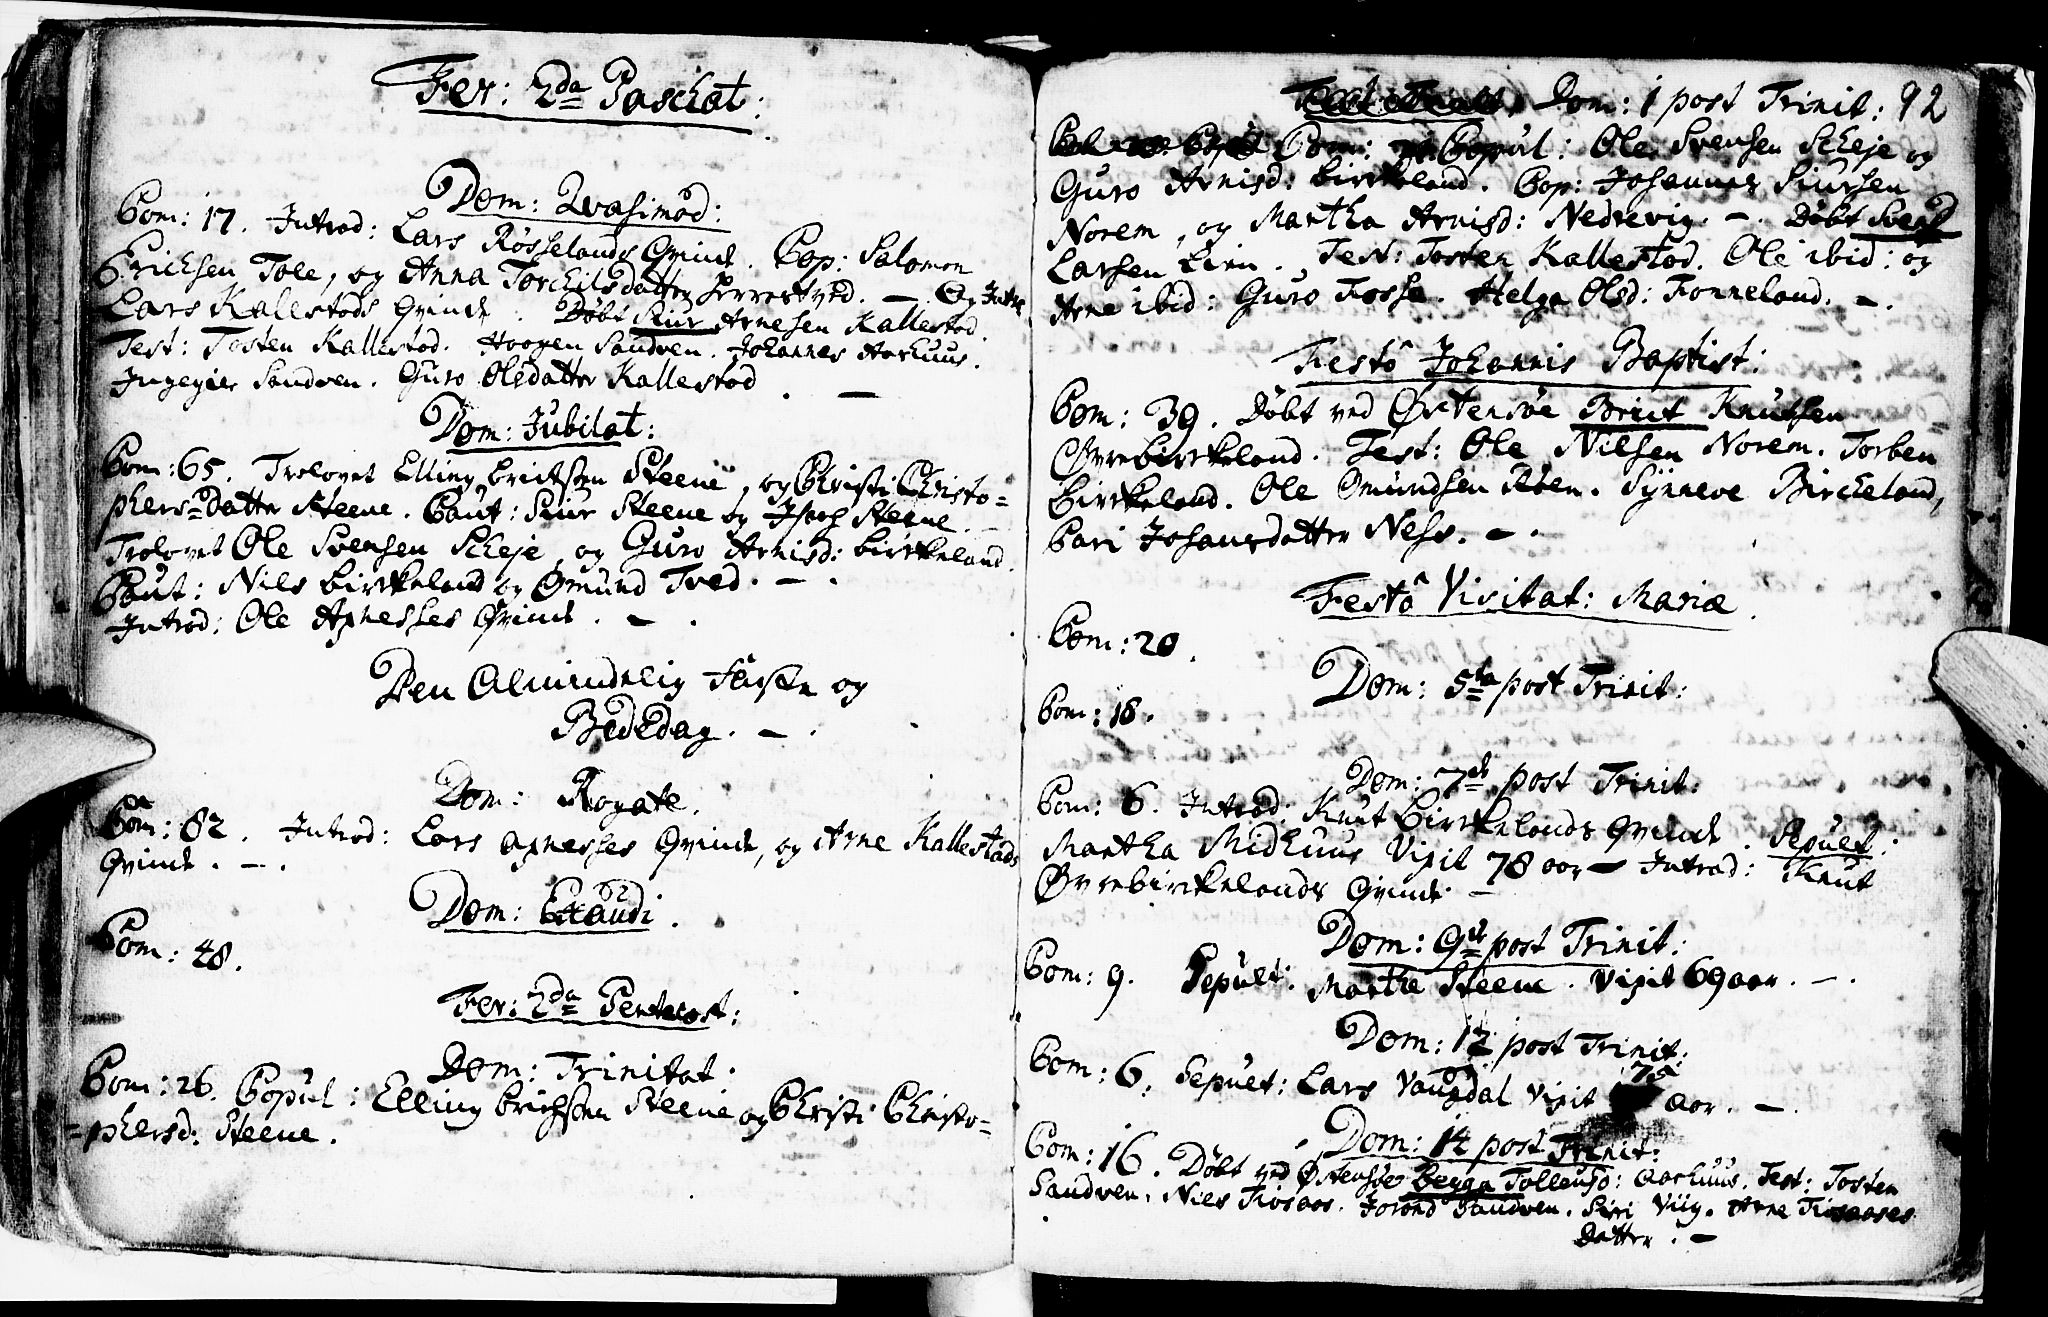 Fer: 2da Paschat:
Dom: Qvasimod:
Com: 17. Introd: Lars Røsselands Qvinde. Cop: Salomon
Erichsen Tole, og Anna Torchilsdatter - . Og Intro
Lars Kallestads Qvinde. Døbt Siur Arnesen Kallestad.
Test: Tosten Kallestad. Haagen Sandven. Johannes Aarhuus.
Ingegier Sandven. Guro Olsdatter Kallestad. -
Dom: Jubilat:
Com: 65. Trolovet Elling Erichsen Steene, og Christi Christo=
phers=Datter Steene. Caut: Siur Steene og Steene. -
Trolovet Ole Svensen Scheje og Guro Arnisd: Birkeland.
Caut: Niels Birkeland og Omund Tved. - .
Introd: Ole Axnesses Qvinde. - .
Den Almindelig Faste og
Bededag. - .
Dom: Rogate.
Com: 82. Introd: Lars Axnesses Qvinde, og Arne Kallestads
Qvinde. - .
Dom: Exaudi.
Com: 48.
Fer: 2da Pentecost:
Dom: Trinitat:
Com: 26. Copul: Elling Erichsen Steene og Christi Christo=
=phersd: Steene.
Dom: 1 post Trinit: 92
Com: Copul: Ole Svensen Scheje og
Guro Arnisd: Birkeland. Cop: Johannes Siursen
Norem, og Martha Arnisd: Nedrevig. - . Døbt Svend
Larsen Lien. Test: Tosten Kallestad. Ole ibid: og
Arne ibid: Guro Fosse. Helga Olsd: Fonneland. - .
Festo Johannis Baptist:
Com: 39. Døbt ved Østensøe Knutsen
Øvrebirkeland. Test: Ole Nilsen Norem. Torben
Birkeland. Ole Omundsen . Synneve Bircheland,
Cari Johansdatter Ness. - .
Festo Visitat: Mariæ.
Com: 20.
Dom: 5ta post Trinit:
Com: 18.
Dom: 7de post Trinit:
Com: 6. Introd: Knut Birkelands Qvinde. Sepult:
Martha Midhuus Vixit 78 aar - Introd: Knut
Øvrebirkelands Qvinde -
Dom: 9de post Trinit:
Com: 9. Sepult: Martha Steene. Vixit 69 aar. - .
Dom: 12 post Trinit:
Com: 6. Sepult: Lars Vangdal Vixit 70 aar. - .
Dom: 14 post Trinit:
Com: 16. Døbt ved Østensøe Tollevsd: Aarhuus. Test: Tosten
Sandven. Niels Tiosaas. Sandven. Siri Viig. Arne Tiosaases
Datter. -